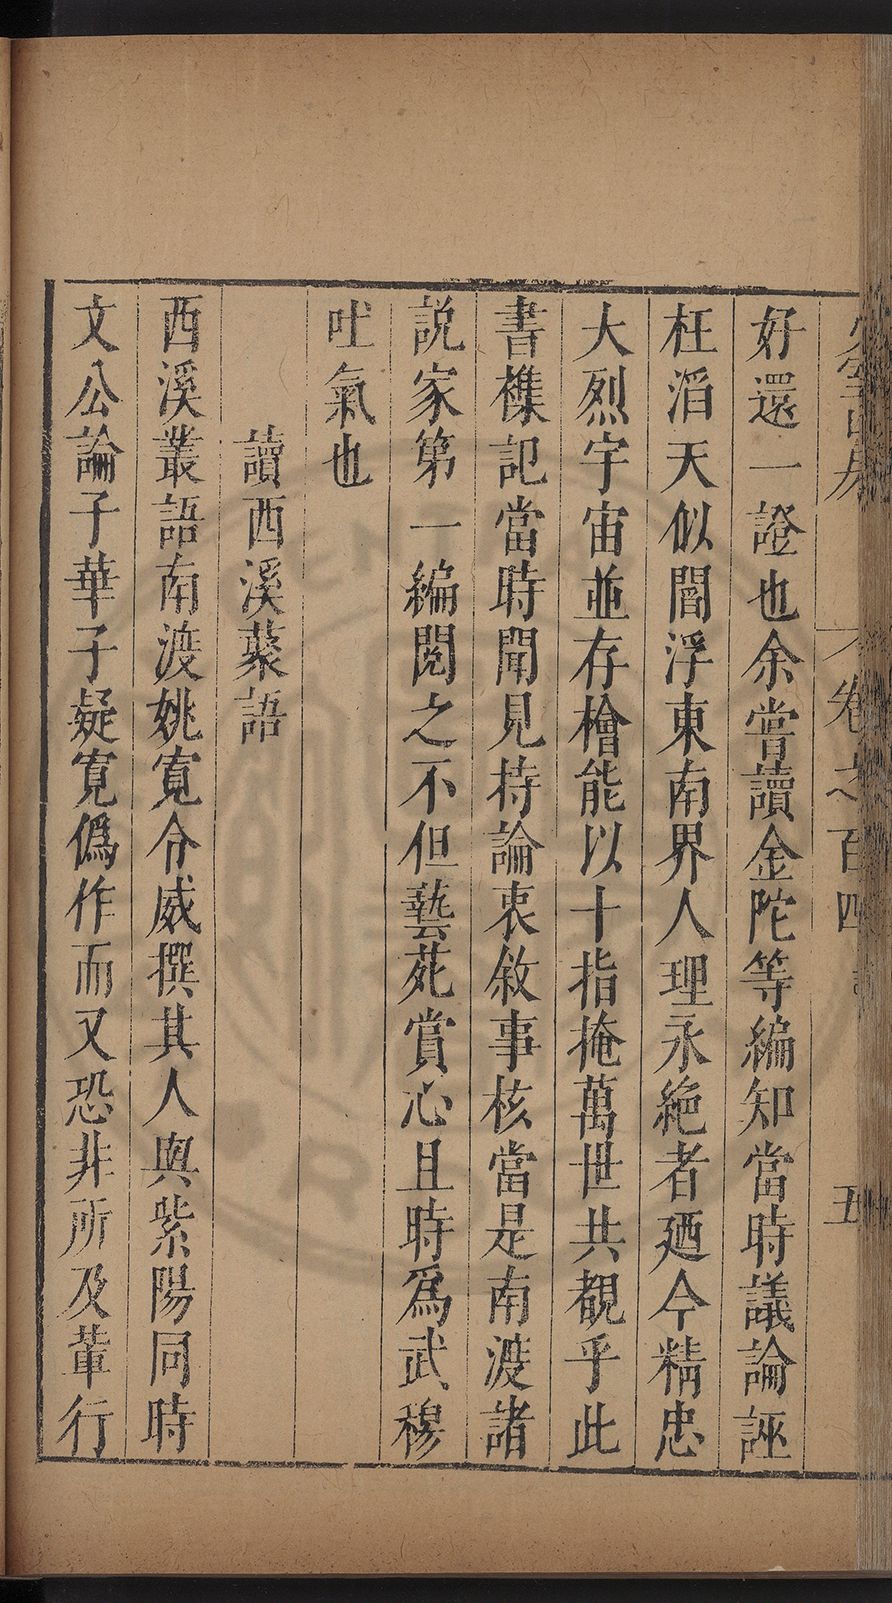 卷之百四
五
好還一證也余嘗讀金陀等編知當時議論誣
枉滔天似閻浮東南界人理永絕者廼今精忠
大烈宇宙並存檜能以十指掩萬世共覩乎此
書橅記當時聞見持論衷敘事核當是南渡諸
説家第一編閱之不但藝苑賞心且時爲武穆
吐氣也
讀西溪叢語
西溪叢語南渡姚寬令威撰其人與紫陽同時
文公論子華子疑寬僞作而又恐非所及葷行